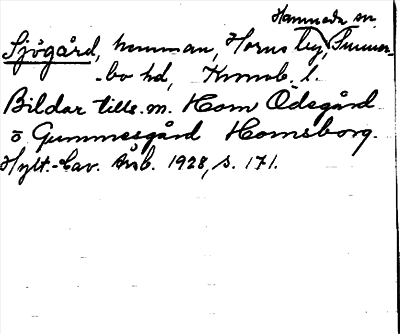 Hamneda sn
Sjögård, hemman, Horns by, Sunner-
bo hd, Kronob. l.
Bildar tills. m. Horn Ödegård
o Gummesgård Hornsborg.
Hylt.-Cav. Årsb. 1928, s. 171.